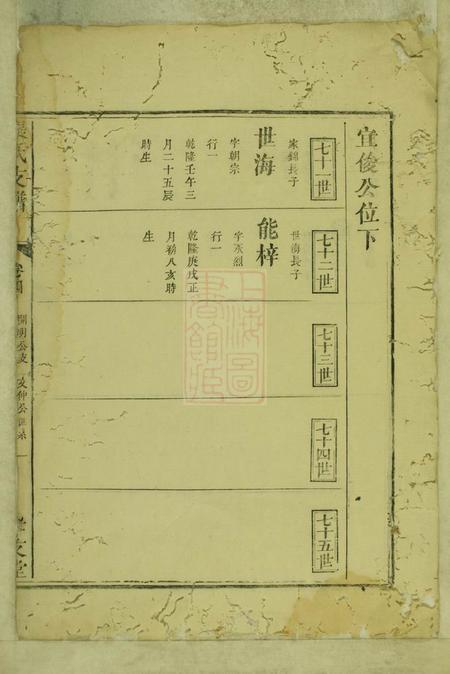 宣俊公位下
七十一世
家錦長子
世海
字朝宗
行一
乾隆壬午三
月二十五辰
時生
七十二世
世海長子
能梓
行一
乾隆庚戌正
月初八亥時
生
七十三世
七十四世
七十五世
氏支譜
卷四
上海圖
書館藏